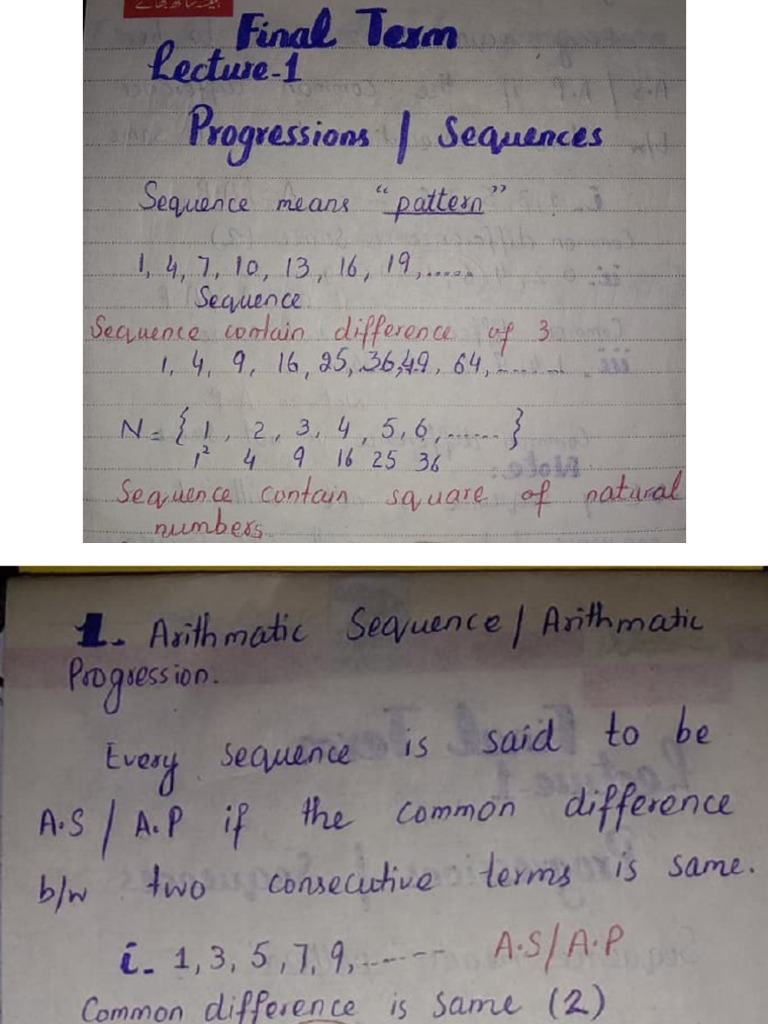 Final Term
Lecture-1
Progressions / Sequences
Sequence means "pattern"
1, 4, 7, 10, 13, 16, 19,......
Sequence
Sequence contain difference of 3
1, 4, 9, 16, 25, 36, 49, 64, ........
N = { 1, 2, 3, 4, 5, 6, ...... }
1² 4 9 16 25 36
Sequence contain square of natural
numbers.
1. Arithmatic Sequence / Arithmatic
Progression.
Every sequence is said to be
A.S / A.P if the common difference
b/w two consecutive terms is same.
i. 1, 3, 5, 7, 9, ------- A.S/A.P
Common difference is same (2)